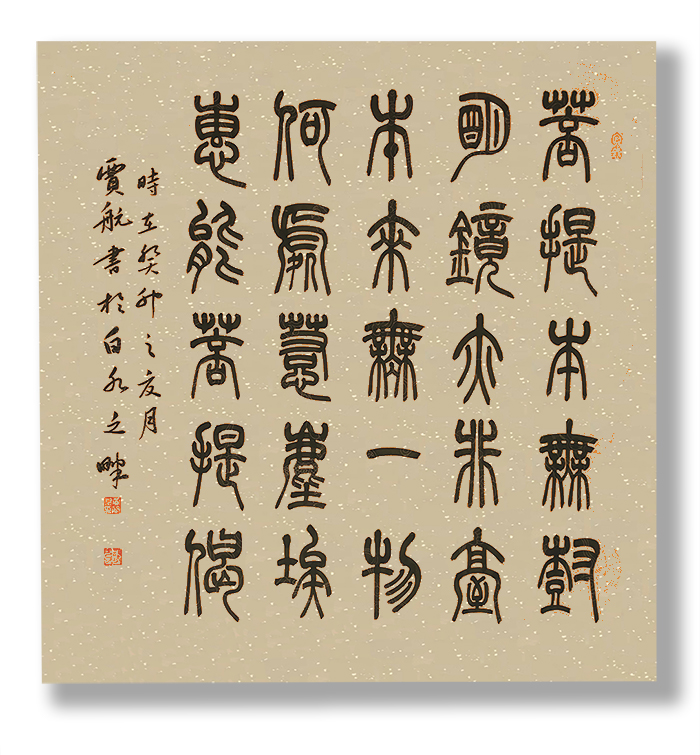 菩提本無樹
明鏡亦非臺
本來無一物
何處惹塵埃
惠能菩提偈
時在癸卯之夏月
賈航書於白水之畔